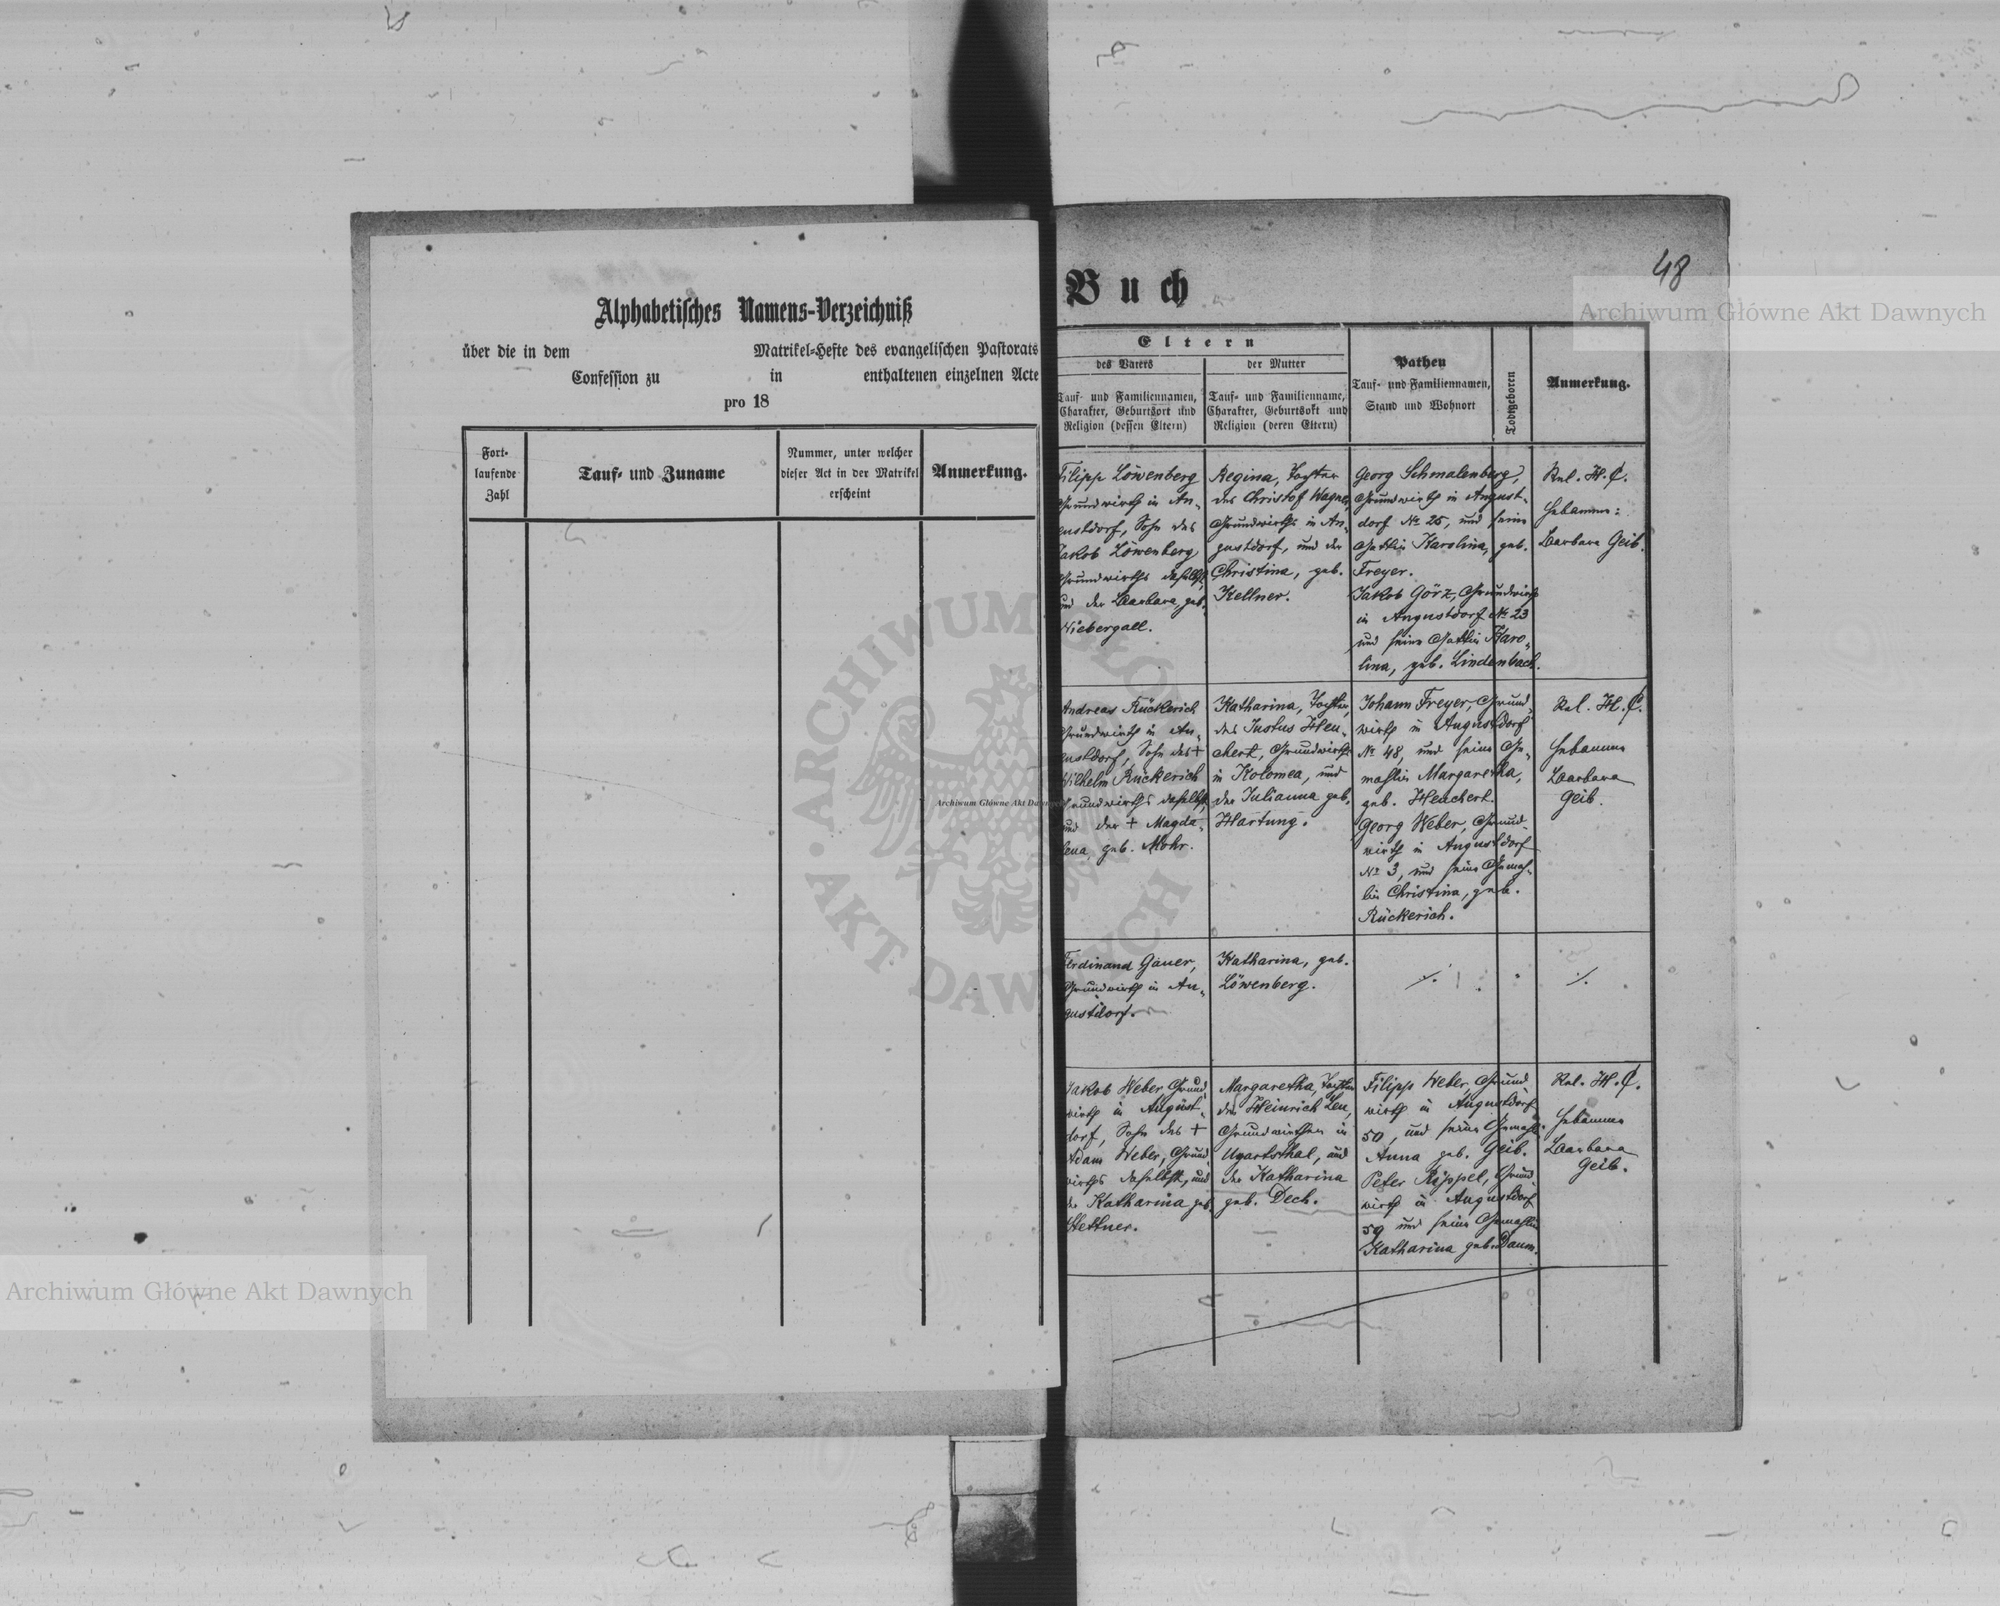 48
Alphabetisches Namens-Verzeichniß
über die in dem Matrikel-Hefte des evangelischen Pastorats
Confession zu in enthaltenen einzelnen Acte
pro 18
Fort-
laufende
Zahl
Tauf- und Zuname
Nummer, unter welcher
dieser Act in der Matrikel
erscheint
Anmerkung.
Buch
Eltern
des Vaters
Tauf- und Familiennamen,
Charakter, Geburtsort und
Religion (dessen Eltern)
der Mutter
Tauf- und Familienname,
Charakter, Geburtsort und
Religion (deren Eltern)
Pathen
Tauf- und Familiennamen,
Stand und Wohnort
Todtgeboren
Anmerkung.
Filipp Löwenberg
Grundwirth in Au-
gustdorf, Sohn des
Jakob Löwenberg
Grundwirths daselbst,
und der Barbara, geb.
Niebergall.
Regina, Tochter
des Christof Wagner,
Grundwirths in Au-
gustdorf, und der
Christina, geb.
Kellner.
Georg Schmalenberg,
Grundwirth in August-
dorf № 25, und seine
Gattin Karolina, geb.
Freyer.
Jakob Görz, Grundwirth
in Augustdorf № 23
und seine Gattin Karo-
lina, geb. Lindenbach.
Rel. H. C.
Hebamme:
Barbara Geib.
Andreas Rückerich
Grundwirth in Au-
gustdorf, Sohn des +
Wilhelm Rückerich
Grundwirths daselbst,
und der + Magda-
lena, geb. Mohr.
Katharina, Tochter
des Justus Heu-
chert, Grundwirths
in Kolomea, und
der Julianna geb.
Hartung.
Johann Freyer, Grund-
wirth in Augustdorf
№ 48, und seine Ge-
mahlin Margaretha,
geb. Heuchert.
Georg Weber, Grund-
wirth in Augustdorf
№ 3, und seine Gemah-
lin Christina, geb.
Rückerich.
Rel. H. C.
Hebamme
Barbara
Geib.
Ferdinand Gauer,
Grundwirth in Au-
gustdorf.
Katharina, geb.
Löwenberg.
Jakob Weber, Grund-
wirth in August-
dorf, Sohn des +
Adam Weber, Grund-
wirths daselbst, und
der Katharina geb.
Hettner.
Margaretha, Tochter
des Heinrich Leu,
Grundwirthen in
Ugartsthal, und
der Katharina
geb. Dech.
Filipp Weber, Grund-
wirth in Augustdorf
50, und seine Gemahlin
Anna geb. Geib.
Peter Rippel, Grund-
wirth in Augustdorf
59 und seine Gemahlin
Katharina geb. Daum.
Rel. H. C.
Hebamme
Barbara
Geib.
Archiwum Główne Akt Dawnych
Archiwum Główne Akt Dawnych
Archiwum Główne Akt Dawnych